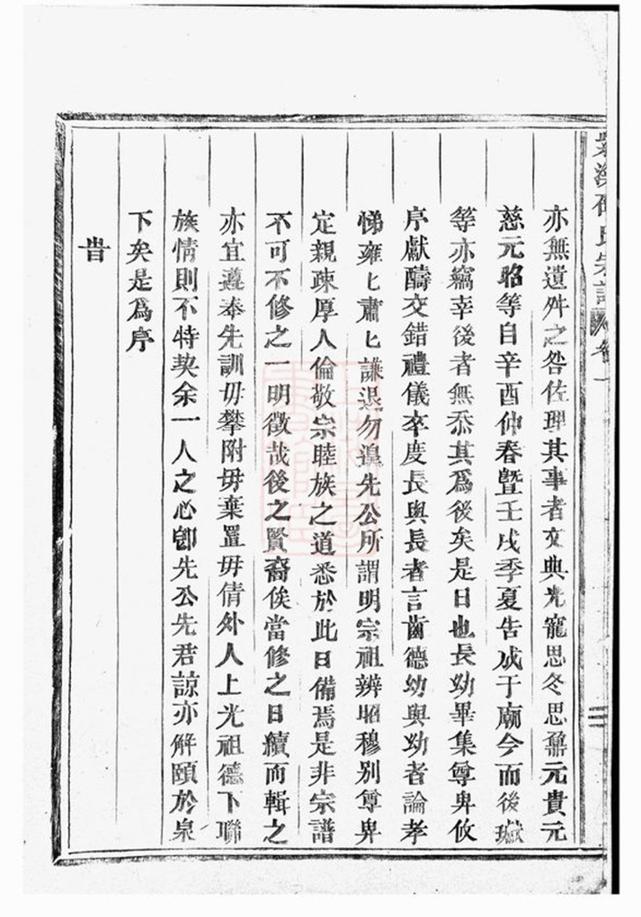 亦無遺舛之咎佐理其事者文典光寵思冬思鼐元貴元
慈元昭等自辛酉仲春暨壬戌季夏告成于廟今而後瓛
等亦竊幸後者無忝其爲後矣是日也長幼畢集尊卑攸
序獻醻交錯禮儀卒度長與長者言齒德幼與幼者論孝
悌雍匕肅匕謙退勿遑先公所謂明宗祖辨昭穆别尊卑
定親疎厚人倫敬宗睦族之道悉於此日備焉是非宗譜
不可不修之一明徵哉後之賢裔俟當修之日續而輯之
亦宜遵奉先訓毋攀附毋棄置毋倩外人上光祖德下聯
族情則不特契余一人之心卽先公先君諒亦解頤於泉
下矣是爲序
旹
氏宗譜
卷一